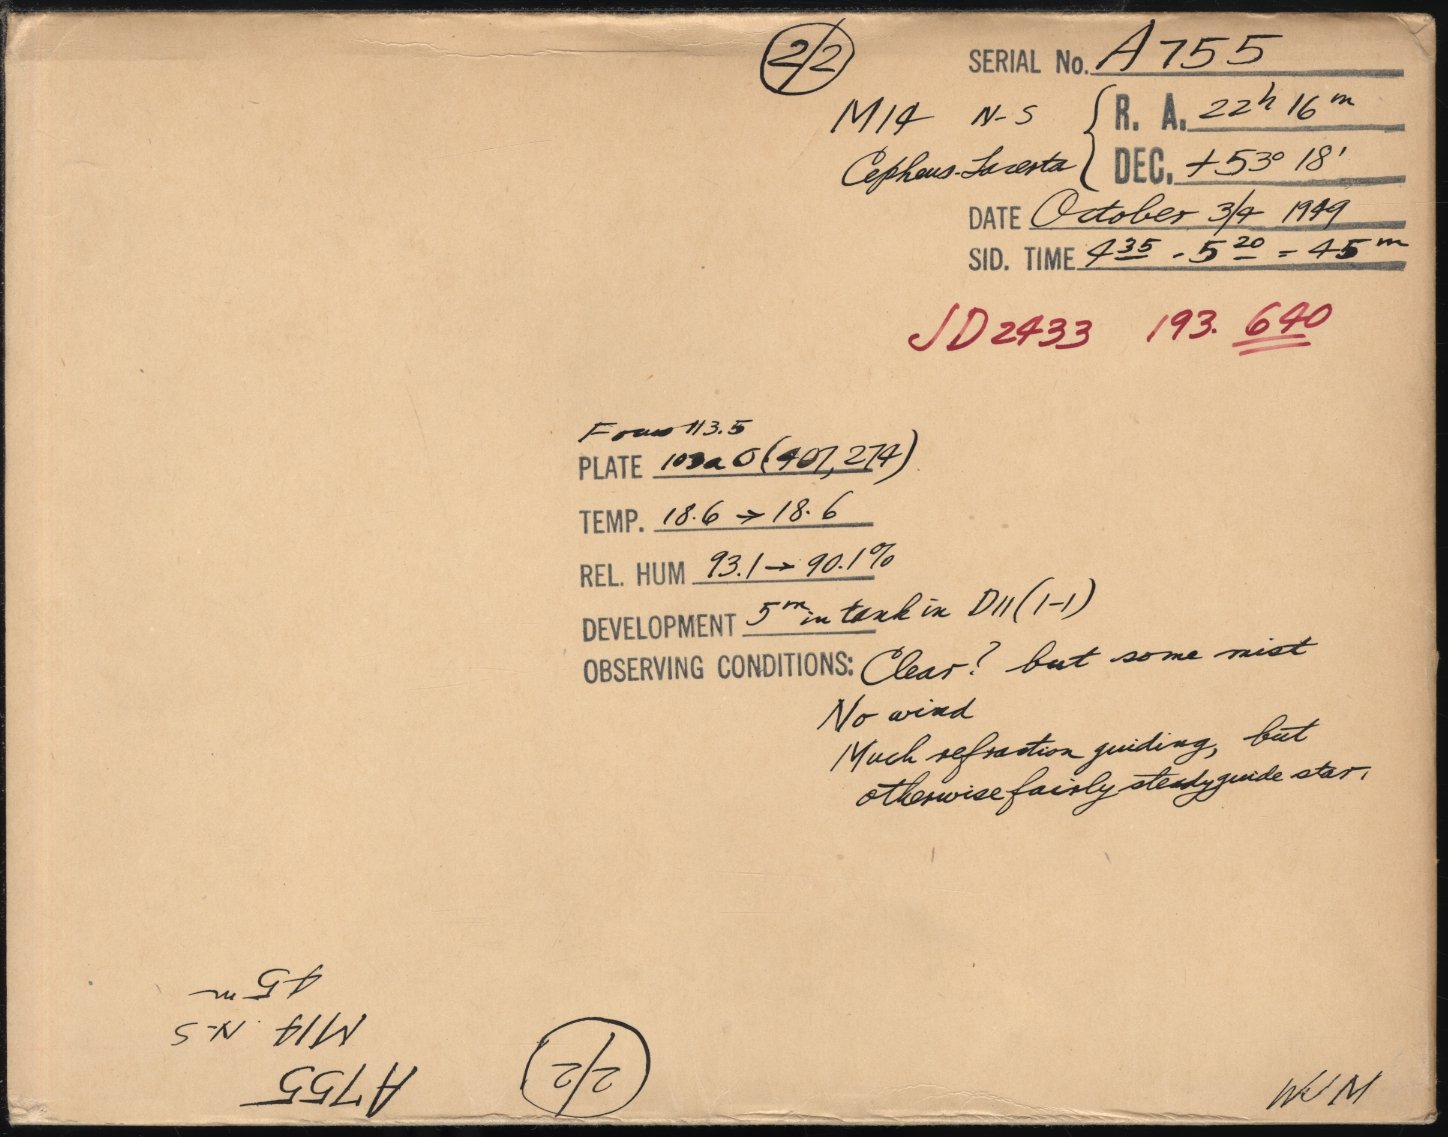 2/2
SERIAL No. A755
M14 N-S { R. A. 22h 16m
Cepheus-Lacerta DEC. +53° 18'
DATE October 3/4 1949
SID. TIME 4 35 - 5 20 = 45m
JD 2433 193. 640
Focus 113.5
PLATE 103a O (407, 274)
TEMP. 18.6 → 18.6
REL. HUM 93.1 → 90.1%
DEVELOPMENT 5m in tank in D11 (1-1)
OBSERVING CONDITIONS: Clear? but some mist
No wind
Much refraction guiding, but
otherwise fairly steady guide star.
A755
M14 N-S
45m
2/2
WJM